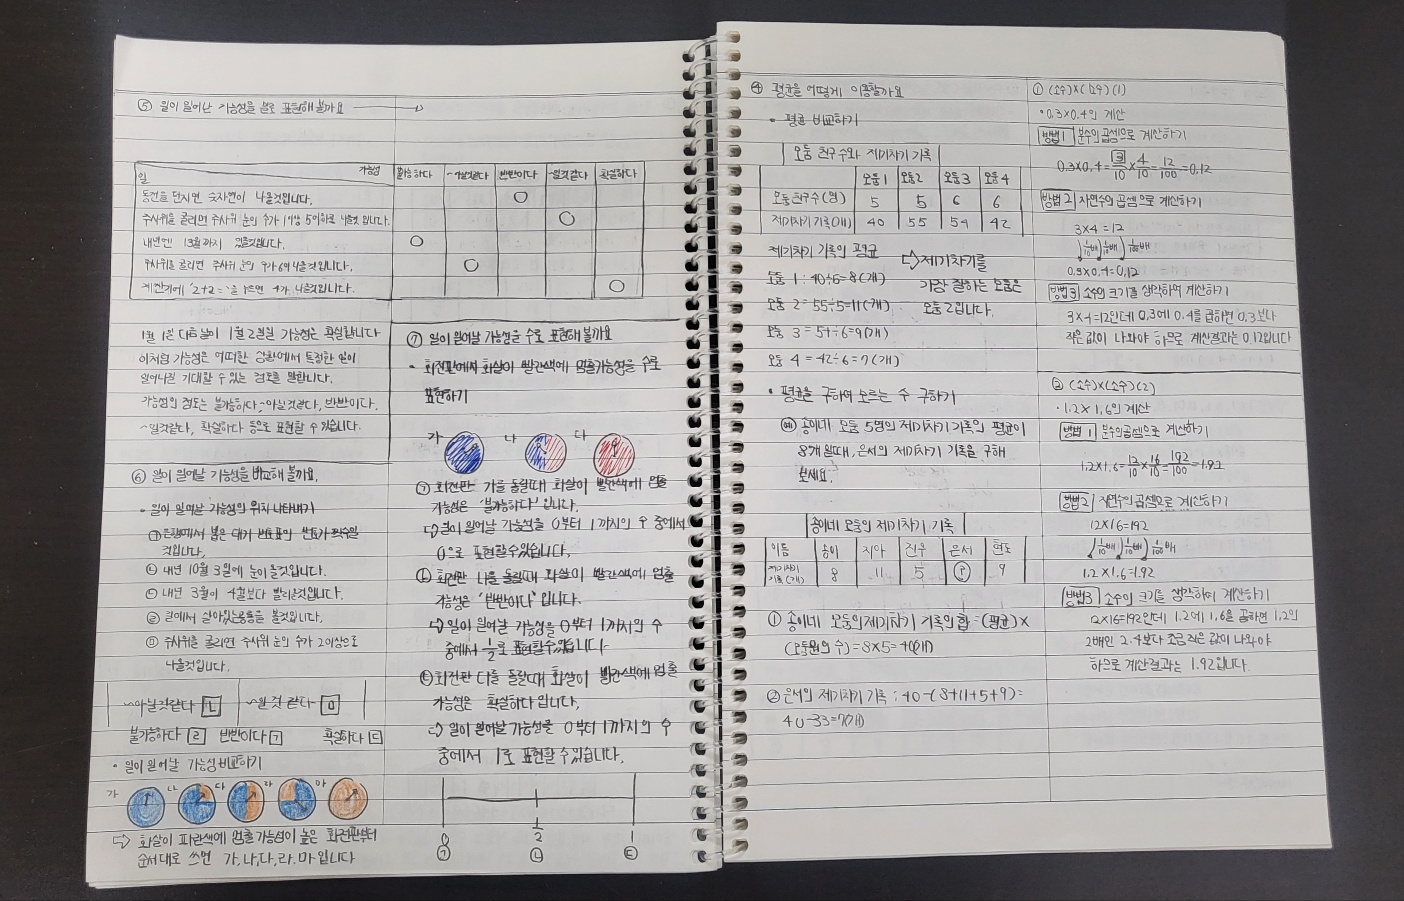 ⑤ 일이 일어날 가능성을 말로 표현해 볼까요 →
가능성
일
불가능하다 ~아닐것같다 반반이다 ~일것같다 확실하다
동전을 던지면 숫자면이 나올것입니다. ○
주사위를 굴리면 주사위 눈의 수가 1이상 5이하로 나올것 입니다. ○
내년에는 13월까지 있을것입니다. ○
주사위를 굴리면 주사위 눈의 수가 6이 나올것입니다. ○
계산기에 '2+2=' 을 누르면 4가 나올것입니다. ○
1월 1일 다음날이 1월 2일일 가능성은 확실합니다
이처럼 가능성은 어떠한 상황에서 특정한 일이
일어나길 기대할 수 있는 정도를 말합니다.
가능성의 정도는 불가능하다, ~아닐것같다, 반반이다,
~일것같다, 확실하다 등으로 표현할 수 있습니다.
⑥ 일이 일어날 가능성을 비교해 볼까요
• 일이 일어날 가능성의 위치 나타내기
㉠ 은행에서 뽑은 대기 번호표의 번호가 짝수일
것입니다.
㉡ 내년 10월 3일에 눈이 올것입니다.
㉢ 내년 3월이 4월보다 빨리 올것입니다.
㉣ 길에서 살아있는 공룡을 볼것입니다.
㉤ 주사위를 굴리면 주사위 눈의 수가 2이상으로
나올것입니다.
~아닐것같다 ㄴ ~일것 같다 ㅁ
불가능하다 ㄹ 반반이다 ㄱ 확실하다 ㄷ
• 일이 일어날 가능성 비교하기
가 나 다 라 마
⇨ 화살이 파란색에 멈출 가능성이 높은 회전판부터
순서대로 쓰면 가, 나, 다, 라, 마 입니다
⑦ 일이 일어날 가능성을 수로 표현해 볼까요
• 회전판에서 화살이 빨간색에 멈출가능성을 수로
표현하기
가 나 다
㉠ 회전판 가를 돌릴때 화살이 빨간색에 멈출
가능성은 '불가능하다' 입니다.
⇨ 일이 일어날 가능성을 0부터 1까지의 수 중에서
0으로 표현할 수있습니다.
㉡ 회전판 나를 돌릴때 화살이 빨간색에 멈출
가능성은 '반반이다' 입니다.
⇨ 일이 일어날 가능성을 0부터 1까지의 수
중에서 1/2로 표현할 수있습니다.
㉢ 회전판 다를 돌릴때 화살이 빨간색에 멈출
가능성은 확실하다 입니다.
⇨ 일이 일어날 가능성을 0부터 1까지의 수
중에서 1로 표현할 수있습니다.
0 1/2 1
㉠ ㉡ ㉢
④ 평균을 어떻게 이용할까요
• 평균 비교하기
모둠 친구 수와 제기차기 기록
모둠1 모둠2 모둠3 모둠4
모둠 친구 수 (명) 5 5 6 6
제기차기 기록(개) 40 55 54 42
제기차기 기록의 평균
모둠 1 : 40÷5=8(개)
모둠 2 = 55÷5=11(개)
모둠 3 = 54÷6=9(개)
모둠 4 = 42÷6=7(개)
⇨ 제기차기를
가장 잘하는 모둠은
모둠 2입니다.
• 평균을 구하여 모르는 수 구하기
예 송이네 모둠 5명의 제기차기 기록의 평균이
8개 일때, 은서의 제기차기 기록을 구해
보세요.
송이네 모둠의 제기차기 기록
이름 송이 지아 진우 은서 현도
제기차기 기록(개) 8 11 5 ? 9
① 송이네 모둠의 제기차기 기록의 합 = (평균)×
(모둠원의 수) = 8×5=40(개)
② 은서의 제기차기 기록 : 40-(8+11+5+9)=
40-33=7(개)
① (소수)×(소수)(1)
• 0.3×0.4의 계산
방법1 분수의 곱셈으로 계산하기
0.3×0.4=3/10×4/10=12/100=0.12
방법 2 자연수의 곱셈으로 계산하기
3×4=12
1/10배 1/10배 1/100배
0.3×0.4=0.12
방법 3 소수의 크기를 생각하여 계산하기
3×4=12인데 0.3에 0.4를 곱하면 0.3보다
작은 값이 나와야 하므로 계산결과는 0.12입니다
② (소수)×(소수)(2)
• 1.2×1.6의 계산
방법 1 분수의 곱셈으로 계산하기
1.2×1.6=12/10×16/10=192/100=1.92
방법2 자연수의 곱셈으로 계산하기
12×16=192
1/10배 1/10배 1/100배
1.2×1.6=1.92
방법3 소수의 크기를 생각하여 계산하기
12×16=192인데 1.2에 1.6을 곱하면 1.2의
2배인 2.4보다 조금 작은 값이 나와야
하므로 계산결과는 1.92입니다.